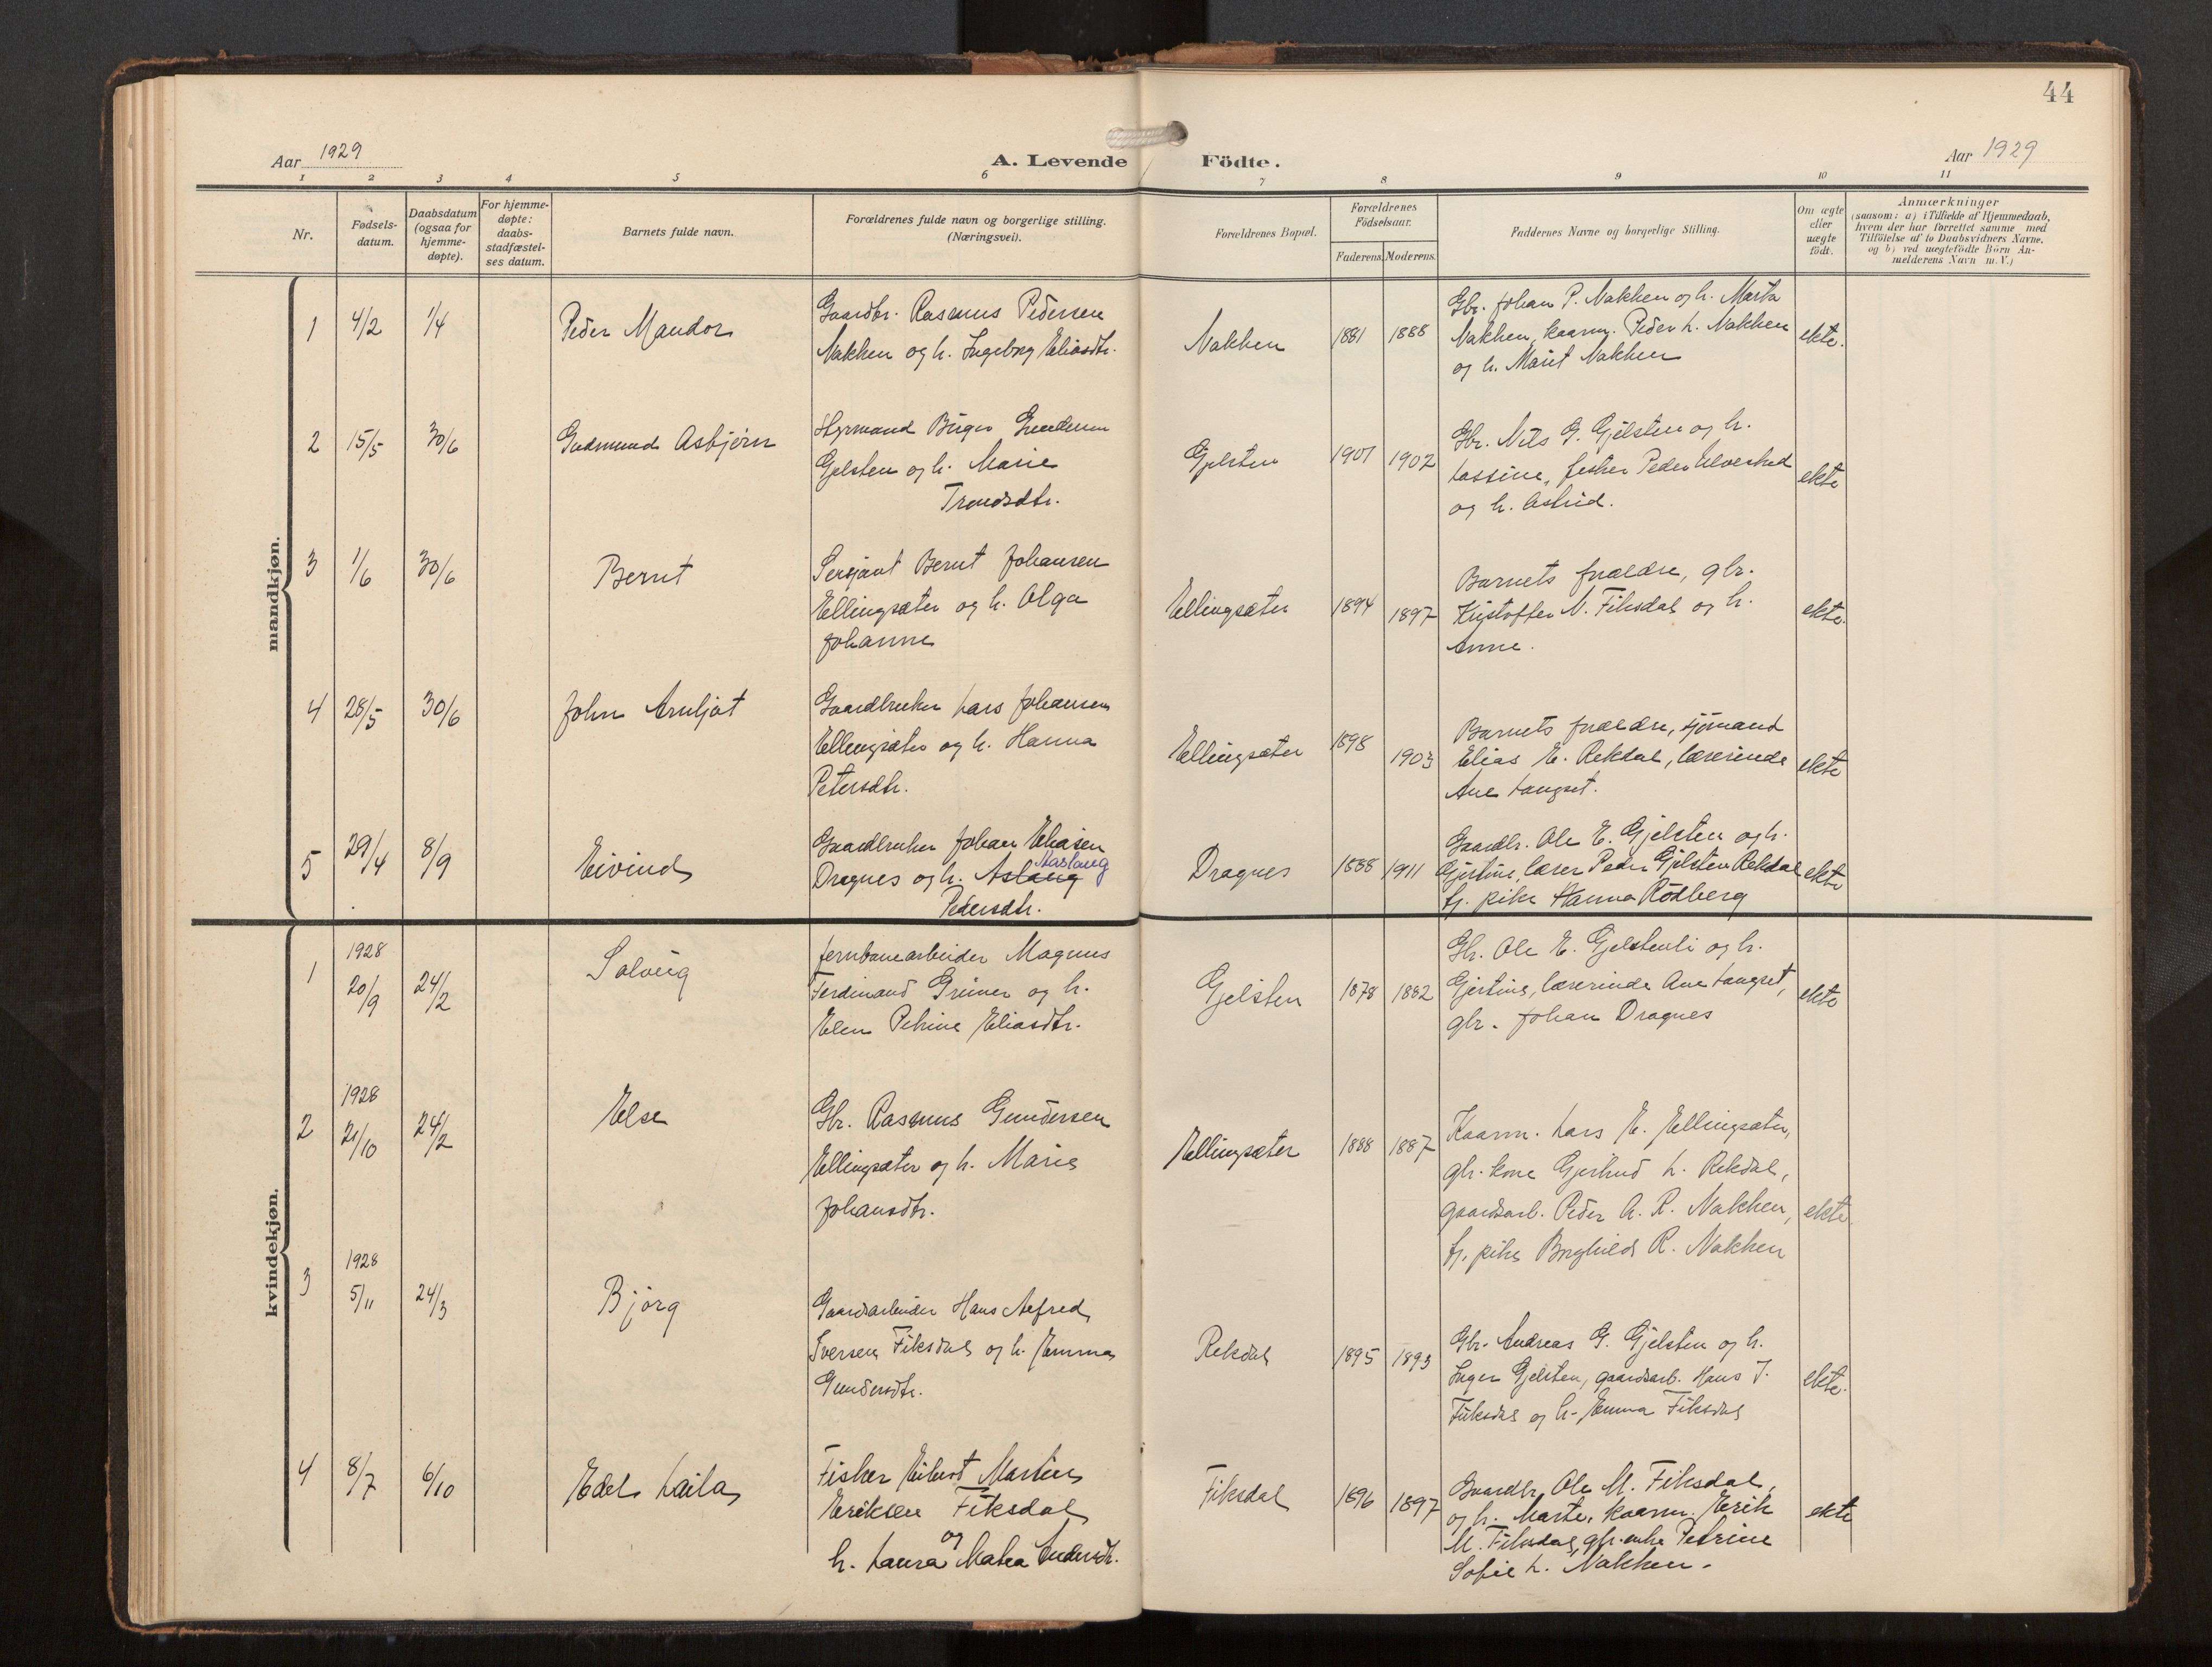 44
Aar 1929
A. Levende Födte.
Aar 1929
1 2 3 4 5 6 7 8 9 10 11
Nr.
Fødsels-
datum.
Daabsdatum
(ogsaa for
hjemme-
døpte).
For hjemme-
døpte:
daabs-
stadfæstel-
ses datum.
Barnets fulde navn.
Forældrenes fulde navn og borgerlige stilling.
(Næringsvei).
Forældrenes Bopæl.
Forældrenes
Födselsaar.
Faderens. Moderens.
Faddernes Navne og borgerlige Stilling.
Om ægte
eller
uægte
födt.
Anmærkninger
(saasom: a) i Tilfælde af Hjemmedaab,
hvem der har forrettet samme med
Tilföielse af to Daabsvidners Navne,
og b) ved uægtefödte Börn An-
melderens Navn m. V.)
mandkjøn.
1 4/2 1/4 Peder Mandor
Gaardbr. Rasmus Pedersen
Nakken og h. Ingeborg Eliasdtr.
Nakken 1881 1888
Gbr. Johan P. Nakken og h. Marta
Nakken, kaarm. Peder L. Nakken
og h. Marit Nakken
ekte.
2 15/5 30/6 Gudmund Asbjørn
Styrmand Birger
Gjelsten og h. Marie
Trondsdtr.
Gjelsten 1901 1902
Gbr. Nils G. Gjelsten og h.
Lassine, fisker Peder
og h. Astrid.
ekte
3 1/6 30/6 Bernt
Sersjant Bernt Johansen
Ellingsæter og h. Olga
Johanne
Ellingsæter 1894 1897
Barnets forældre, gbr.
Kristoffer N. Fiksdal og h.
Anne.
ekte.
4 28/5 30/6 John Arnljot
Gaardbruker Lars Johansen
Ellingsæter og h. Hanna
Petersdtr.
Ellingsæter 1898 1903
Barnets forældre, sjømand
Elias E. Rekdal, lærerinde
Ane Langset.
ekte
5 29/4 8/9 Eivind
Gaardbruker Johan Eliasen
Aaslaug
Dragnes og h. Aslaug
Pedersdtr.
Dragnes 1888 1911
Gaardbr. Ole E. Gjelsten og h.
Gjertine, lærer Peder Gjelsten Rekdal
tj. pike Hanna Rödberg
ekte
kvindekjøn.
1 1928
20/9 24/2 Solveig
Jernbanearbeider Magnus
Ferdinand Grüner og h.
Elen Petrine Eliasdtr.
Gjelsten 1878 1882
Gbr. Ole E. Gjelstenli og h.
Gjertine, lærerinde Ane Langset,
gbr. Johan Dragnes
ekte
2 1928
21/10 24/2 Else
Gbr. Rasmus Gundersen
Ellingsæter og h. Marie
Johansdtr.
Ellingsæter 1888 1887
Kaarm. Lars E. Ellingsæter,
gbr. kone Gjertrud L. Rekdal,
gaardsarb. Peder A. R. Nakken,
tj. pike Borghild R. Nakken
ekte.
3 1928
5/11 24/3 Bjørg
Gaardsarbeider Hans Alfred
Iversen Fiksdal og h. Emma
Gundersdtr.
Rekdal 1895 1893
Gbr. Andreas G. Gjelsten og h.
Inger Gjelsten, gaardsarb. Hans I.
Fiksdal og h. Emma Fiksdal
ekte.
4 8/7 6/10 Edel Laila
Fisker Eilert Martin
Eriksen Fiksdal
og
h. Laura Matea Andersdtr.
Fiksdal 1896 1897
Gaardbr. Ole M. Fiksdal,
og h. Marte, kaarm. Erik
M. Fiksdal, gbr. enke Petrine
Sofie L. Nakken.
ekte